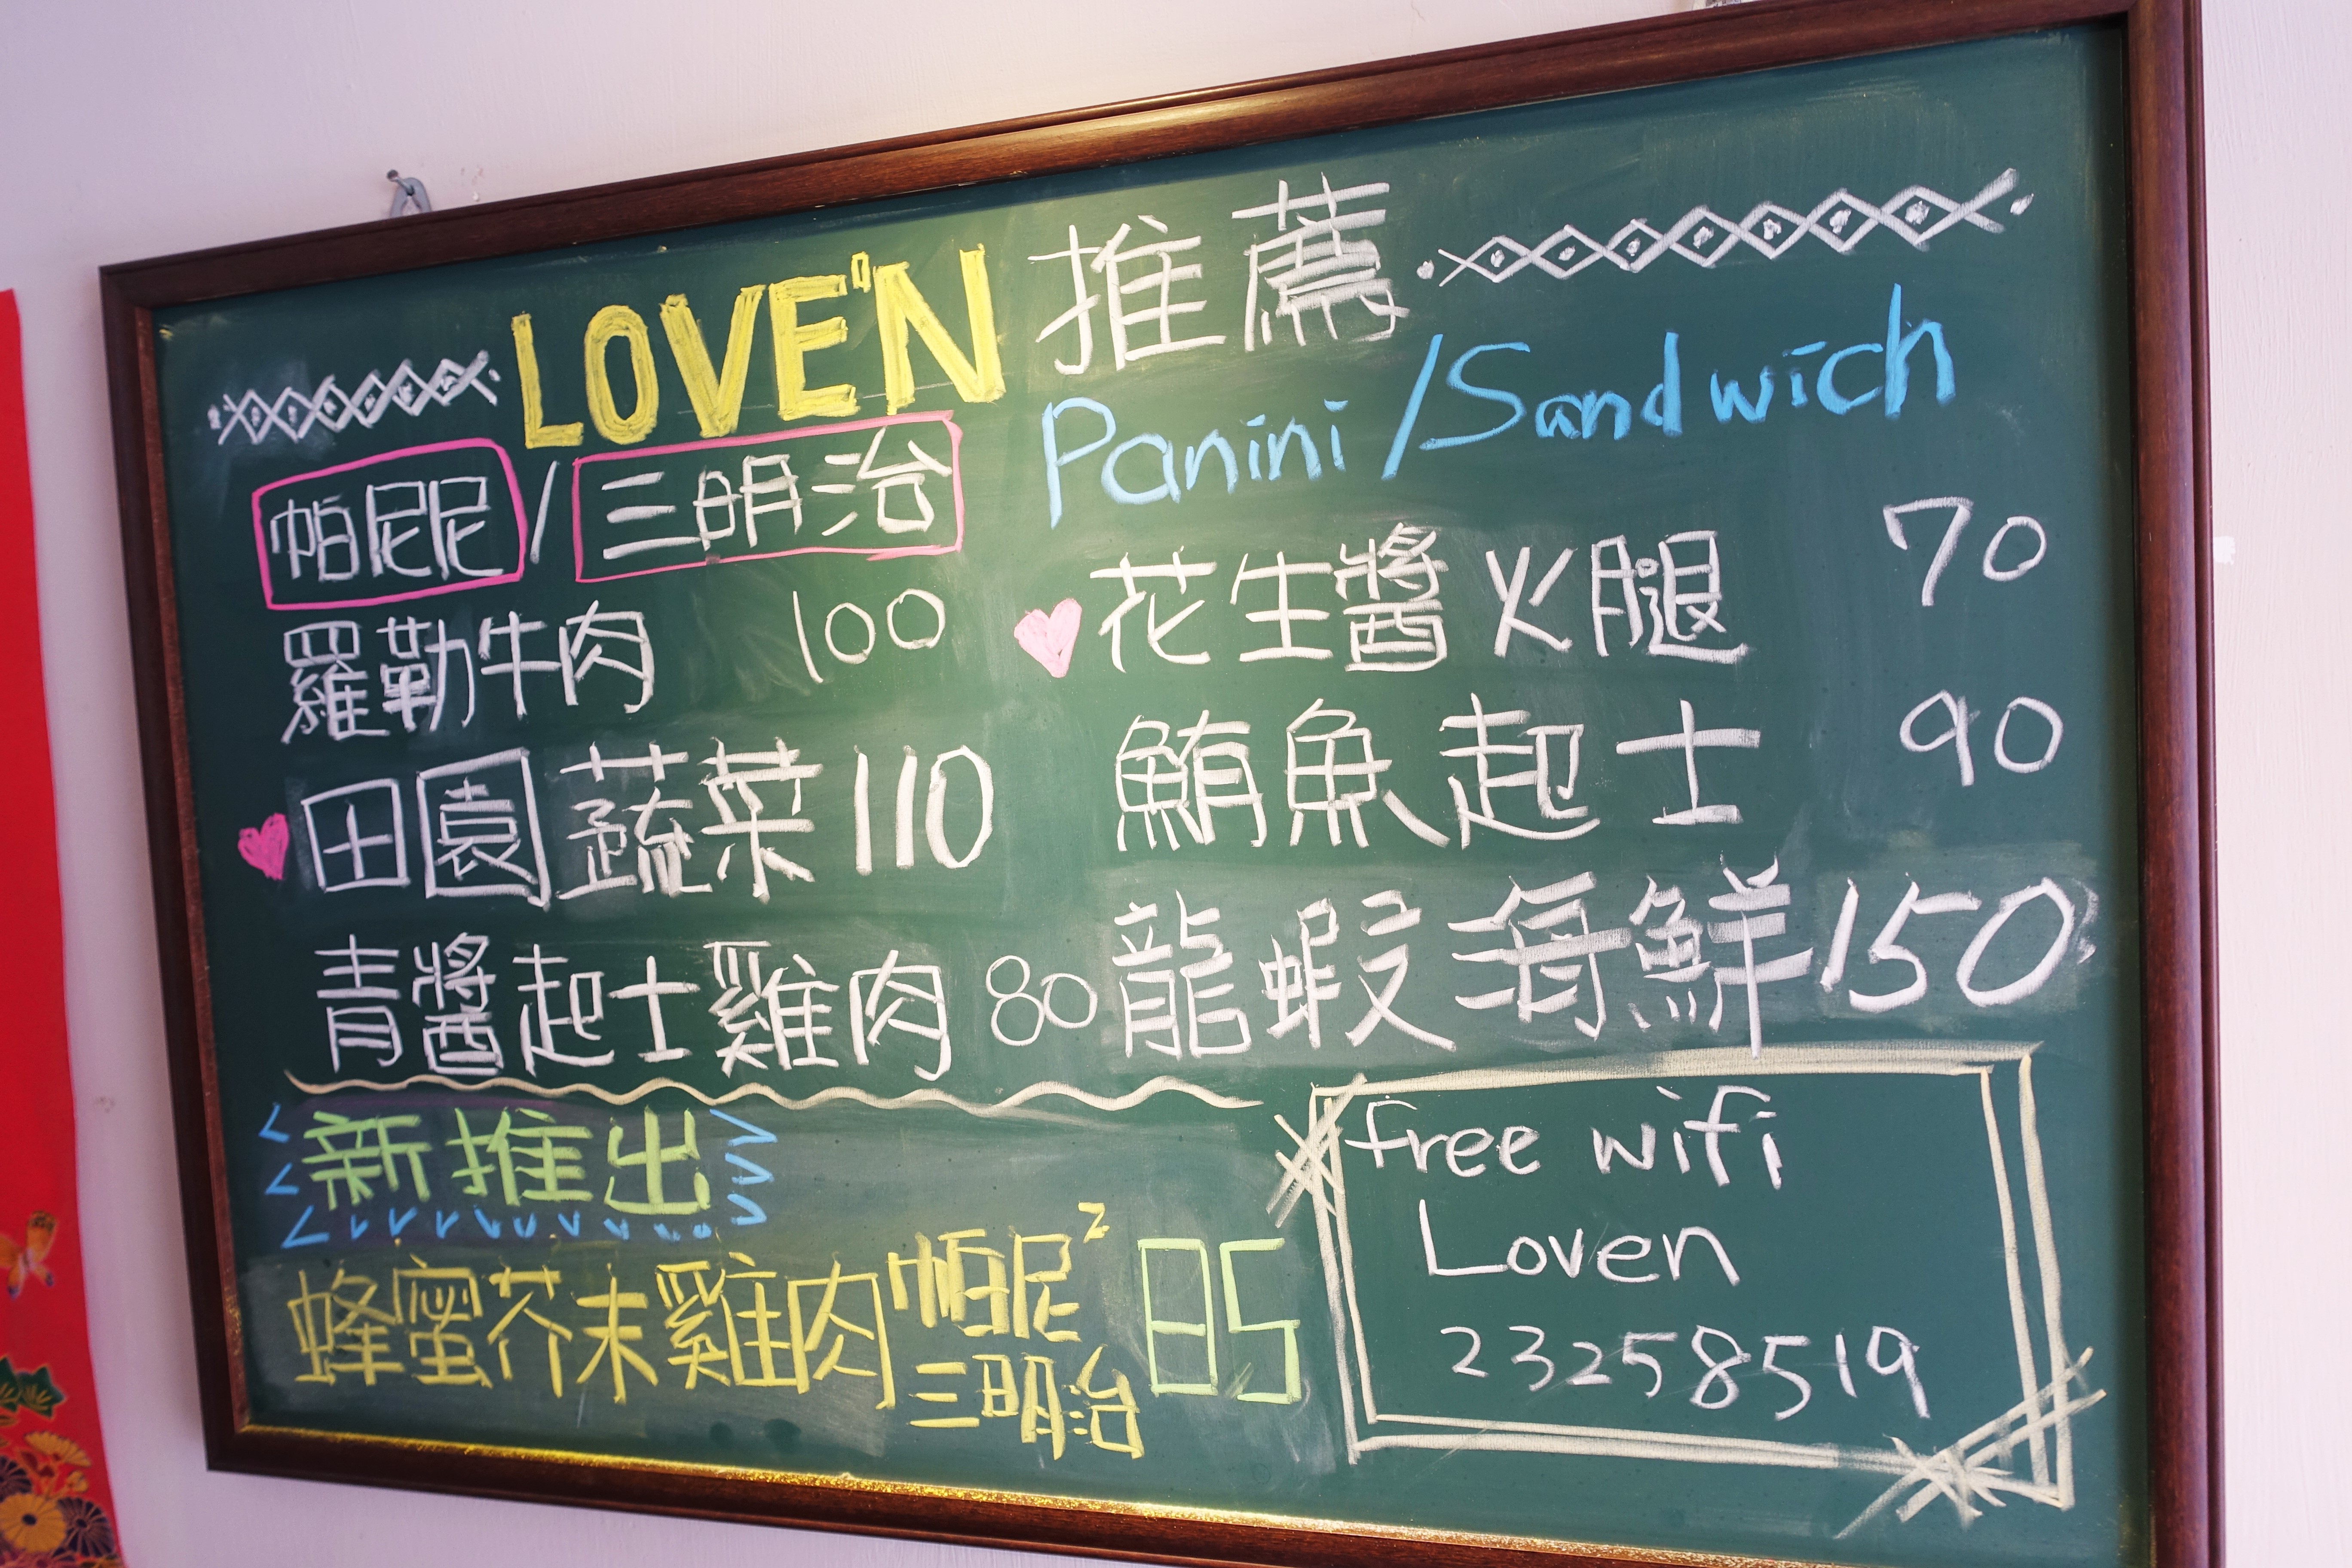 LOVE'N 推薦
帕尼尼/三明治 Panini/Sandwich
羅勒牛肉 100
田園蔬菜 110
青醬起士雞肉 80
花生醬火腿 70
鮪魚起士 90
龍蝦海鮮 150
新推出
蜂蜜芥末雞肉 帕尼² 三明治 85
free wifi
Loven
23258519